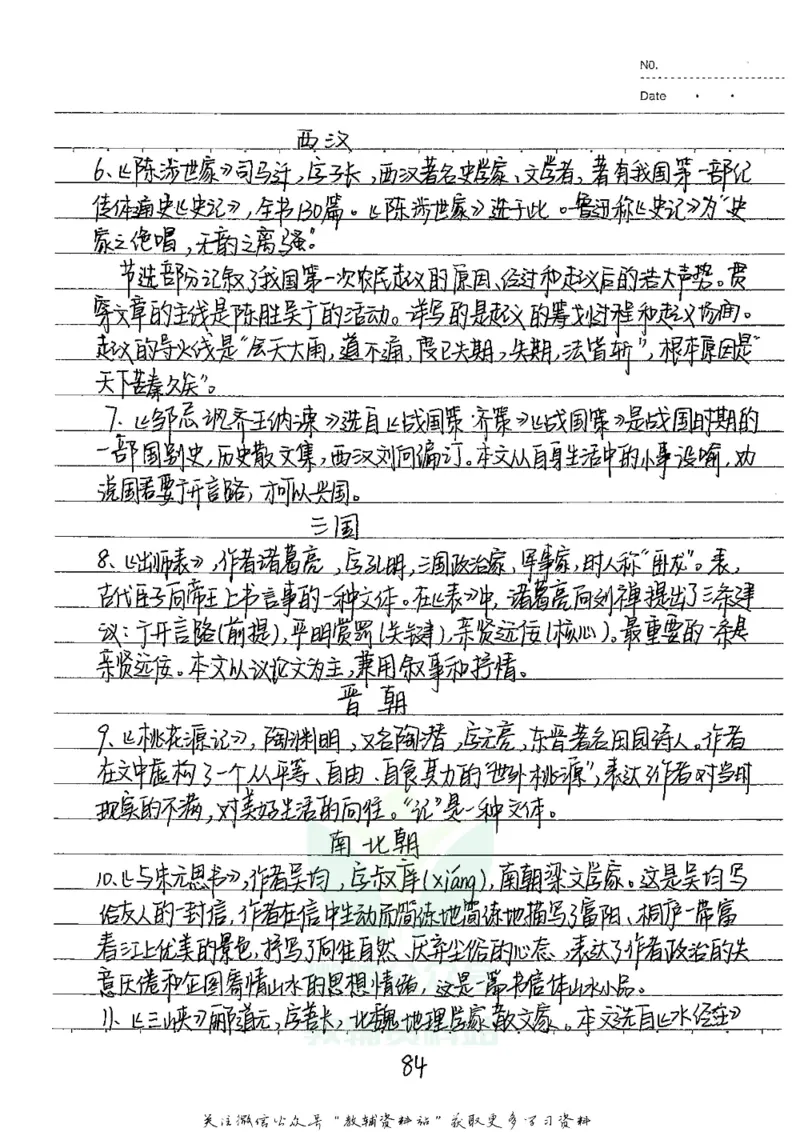 No.
Date
西汉
6、《陈涉世家》司马迁，字子长，西汉著名史学家、文学者，著有我国第一部纪
传体通史《史记》，全书130篇。《陈涉世家》选于此。鲁迅称《史记》为“史
家之绝唱，无韵之离骚”。
节选部分记叙了我国第一次农民起义的原因、经过和起义后的浩大声势。贯
穿文章的主线是陈胜吴广的活动。详写的是起义的筹划过程和起义场面。
起义的导火线是“会天大雨，道不通，度已失期，失期，法皆斩”，根本原因是“
天下苦秦久矣”。
7、《邹忌讽齐王纳谏》选自《战国策·齐策》《战国策》是战国时期的
一部国别史，历史散文集，西汉刘向编订。本文从自身生活中的小事设喻，劝
说国君要广开言路，才可以兴国。
三国
8、《出师表》，作者诸葛亮，字孔明，三国政治家、军事家，时人称“卧龙”。表，
古代臣子向帝王上书言事的一种文体。在《表》中，诸葛亮向刘禅提出了三条建
议：广开言路（前提），平明赏罚（关键），亲贤远佞（核心）。最重要的一条是
亲贤远佞。本文以议论文为主，兼用叙事和抒情。
晋朝
9、《桃花源记》，陶渊明，又名陶潜，字元亮，东晋著名田园诗人。作者
在文中虚构了一个人人平等、自由、自食其力的“世外桃源”，表达了作者对当时
现实的不满，对美好生活的向往。“记”是一种文体。
南北朝
10、《与朱元思书》，作者吴均，字叔庠(xiáng)，南朝梁文学家。这是吴均写
给友人的一封信，作者在信中生动而简练地简练地描写了富阳、桐庐一带富
春江上优美的景色，抒写了向往自然、厌弃尘俗的心态，表达了作者政治的失
意厌倦和企图寄情山水的思想情绪，这是一篇书信体山水小品。
11、《三峡》郦道元，字善长，北魏地理学家散文家。本文选自《水经注》
84
关注微信公众号“教辅资料站”获取更多学习资料